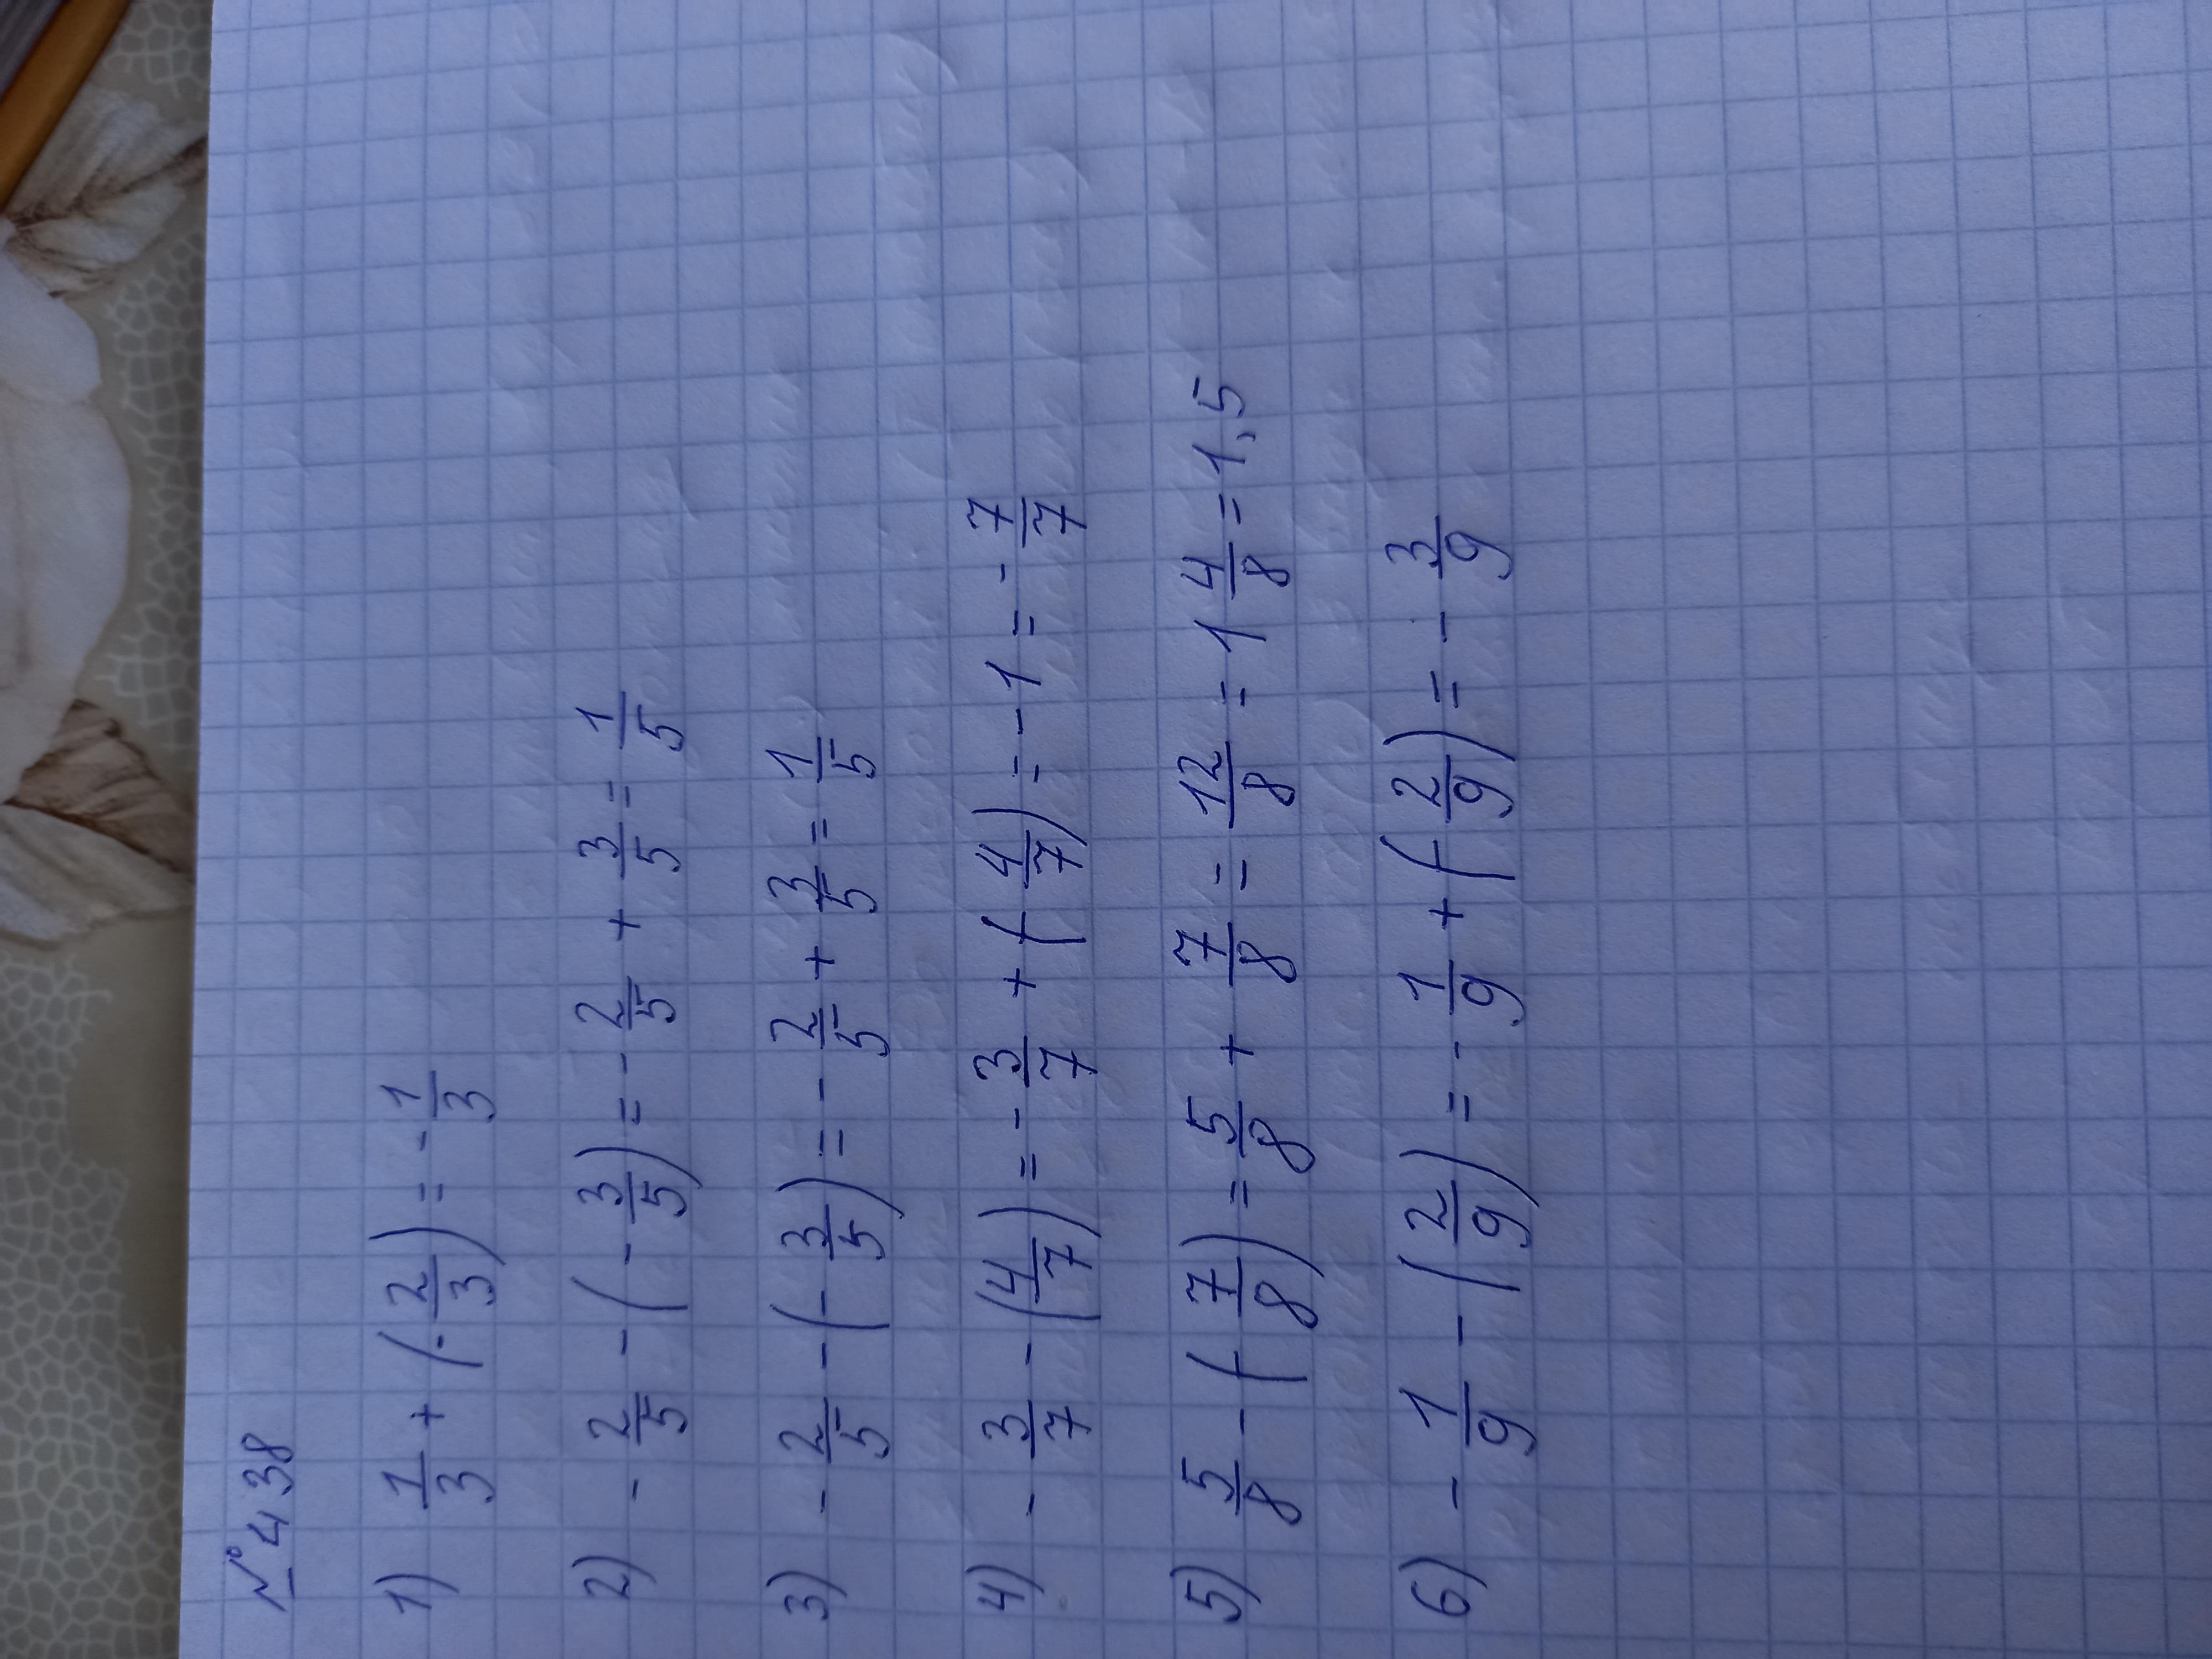 №438
1) 1/3 + (-2/3) = -1/3
2) -2/5 - (-3/5) = -2/5 + 3/5 = 1/5
3) -2/5 - (-3/5) = -2/5 + 3/5 = 1/5
4) -3/7 - (4/7) = -3/7 + (-4/7) = -1 = -7/7
5) 5/8 - (-7/8) = 5/8 + 7/8 = 12/8 = 1 4/8 = 1,5
6) -1/9 - (2/9) = -1/9 + (-2/9) = -3/9